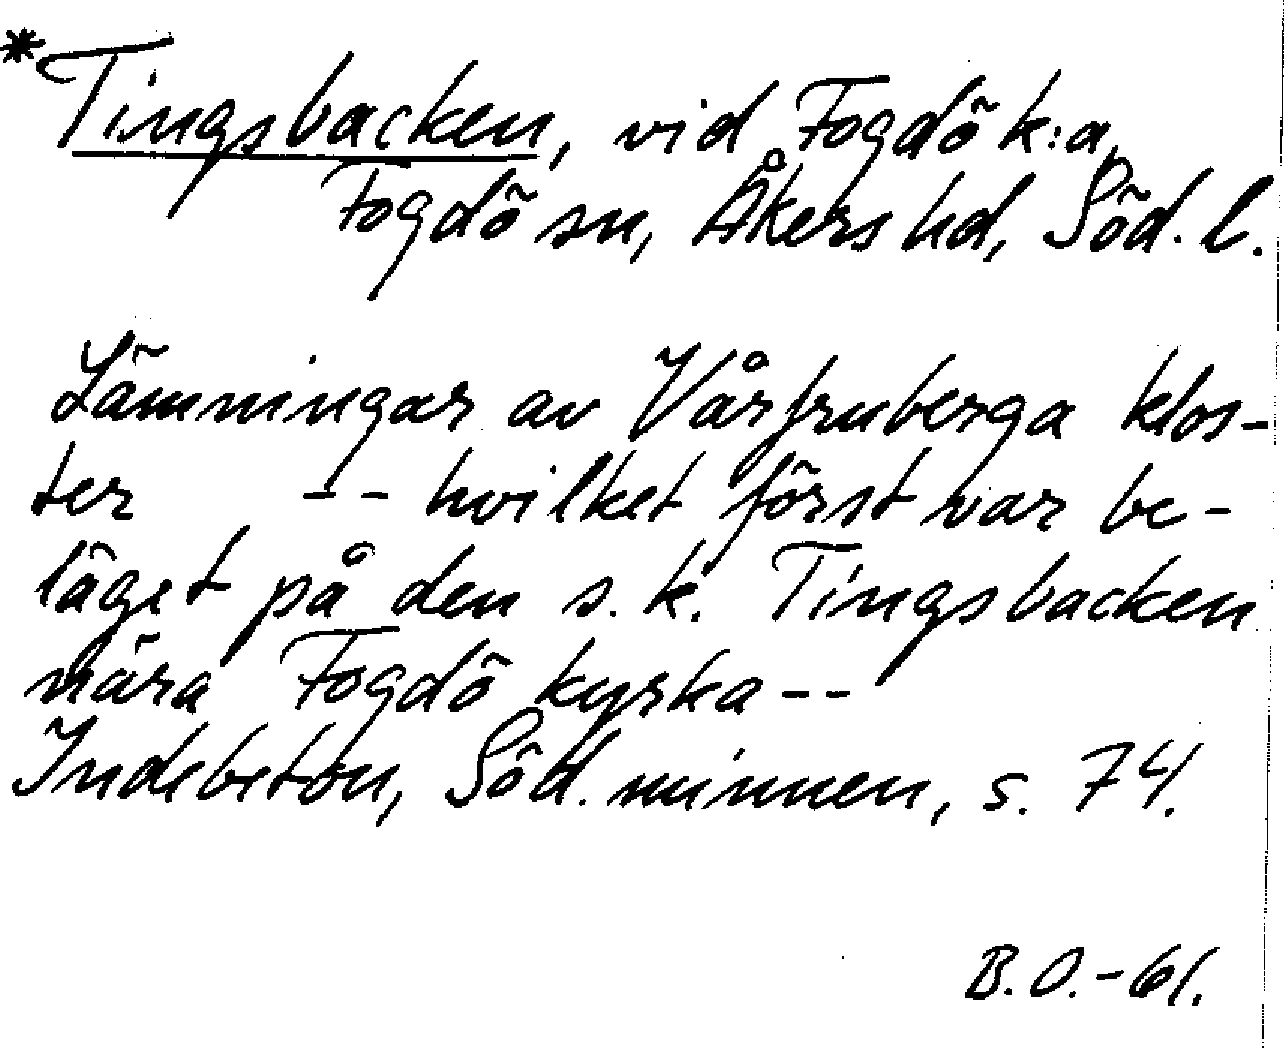 *Tingsbacken, vid Fogdö k:a,
Fogdö sn, Åkers hd, Söd. l.
Lämningar av Vårfruberga klos-
ter -- hvilket först var be-
läget på den s.k. Tingsbacken
nära Fogdö kyrka --
Indebetou, Söd. minnen, s. 74.
B.O.-61.